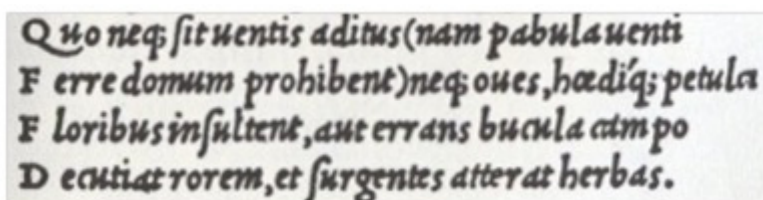 Quo neq; ſit uentis aditus(nam pabula uenti
F erre domum prohibent)neq; oues, hœdíq; petulci
F loribus inſultent, aut errans bucula campo
D ecutiat rorem, et ſurgentes atterat herbas.